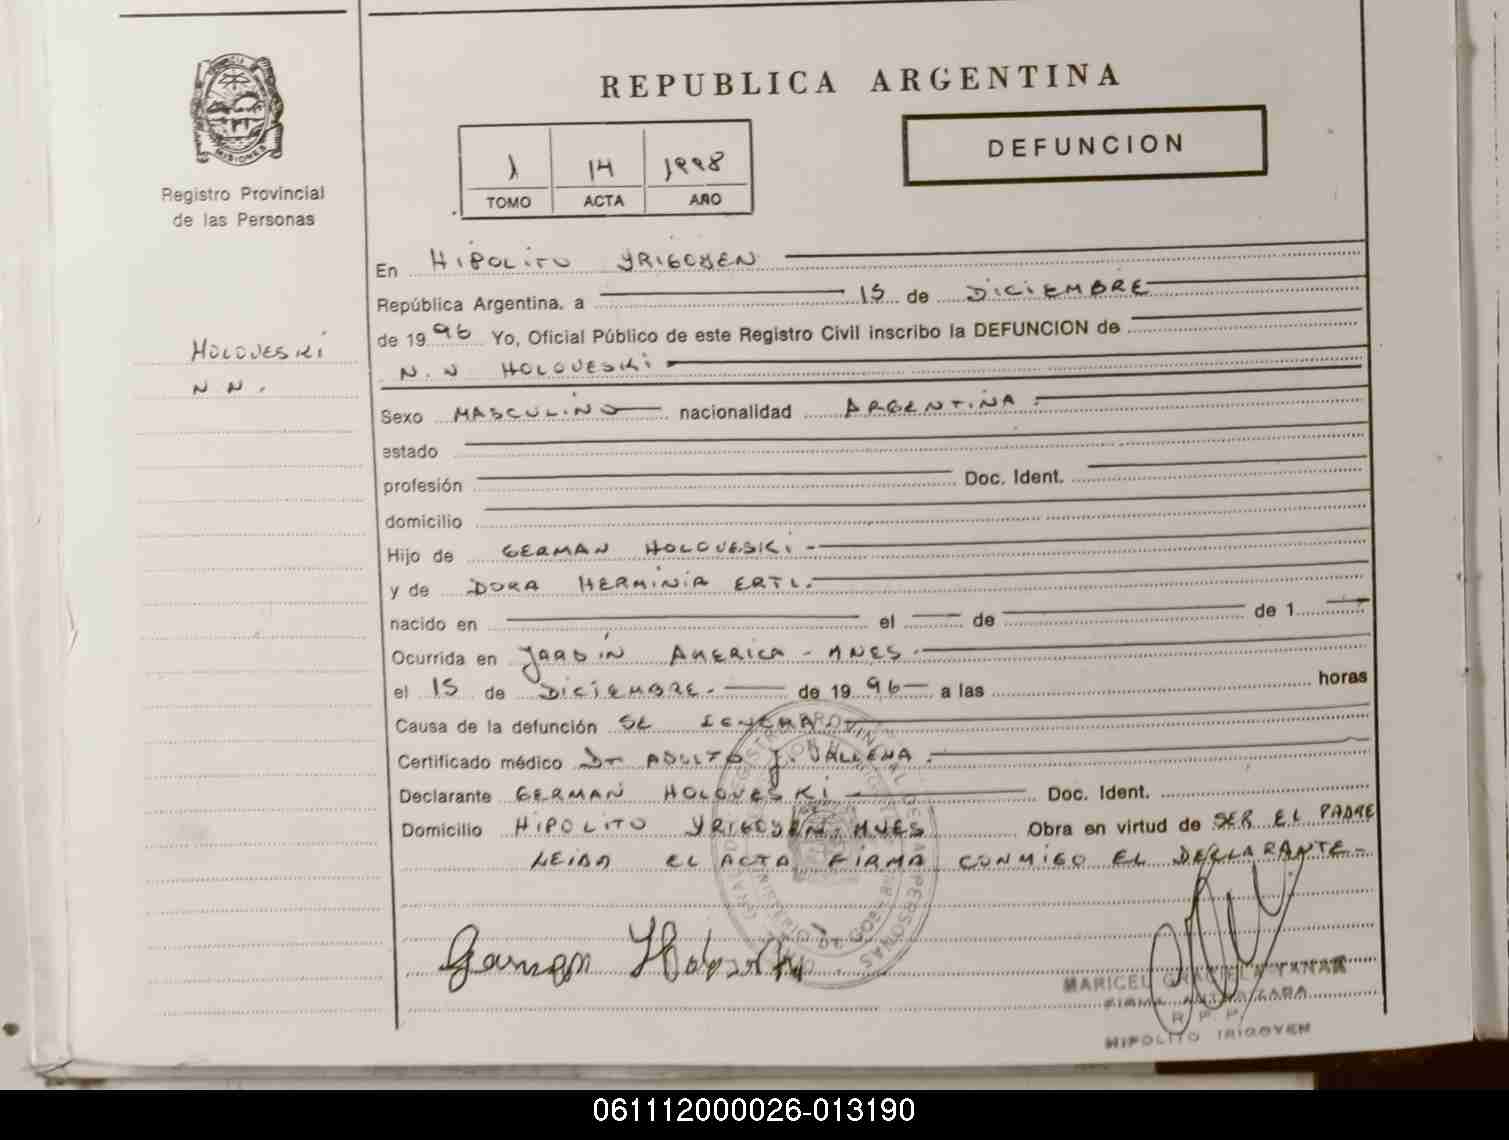 REPUBLICA ARGENTINA
DEFUNCION
1 14 1998
TOMO ACTA AÑO
MISIONES
Registro Provincial
de las Personas
HOLOVESKI
N N.
En HIPOLITO YRIGOYEN
República Argentina, a 15 de DICIEMBRE
de 19 96 Yo, Oficial Público de este Registro Civil inscribo la DEFUNCION de
N. N HOLOVESKI
Sexo MASCULINO nacionalidad ARGENTINA.
estado
profesión Doc. Ident.
domicilio
Hijo de GERMAN HOLOVESKI.
y de DORA HERMINIA ERTL.
nacido en el de de 1
Ocurrida en JARDIN AMERICA - MNES.
el 15 de DICIEMBRE. de 19 96 a las horas
Causa de la defunción SE IGNORA
Certificado médico Dr ADOLFO J. VALLENA.
Declarante GERMAN HOLOVESKI Doc. Ident.
Domicilio HIPOLITO YRIGOYEN. MNES Obra en virtud de SER EL PADRE
LEIDA EL ACTA FIRMA CONMIGO EL DECLARANTE.
MARICEL GRACIELA
FIRMA AUTORIZADA
R. P. P.
HIPOLITO IRIGOYEN
061112000026-013190